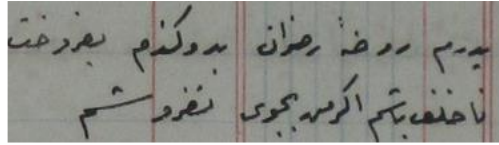 پدرم روضهٔ رضوان بدو گندم بفروخت
ناخلف باشم اگر من بجوی نفروشم